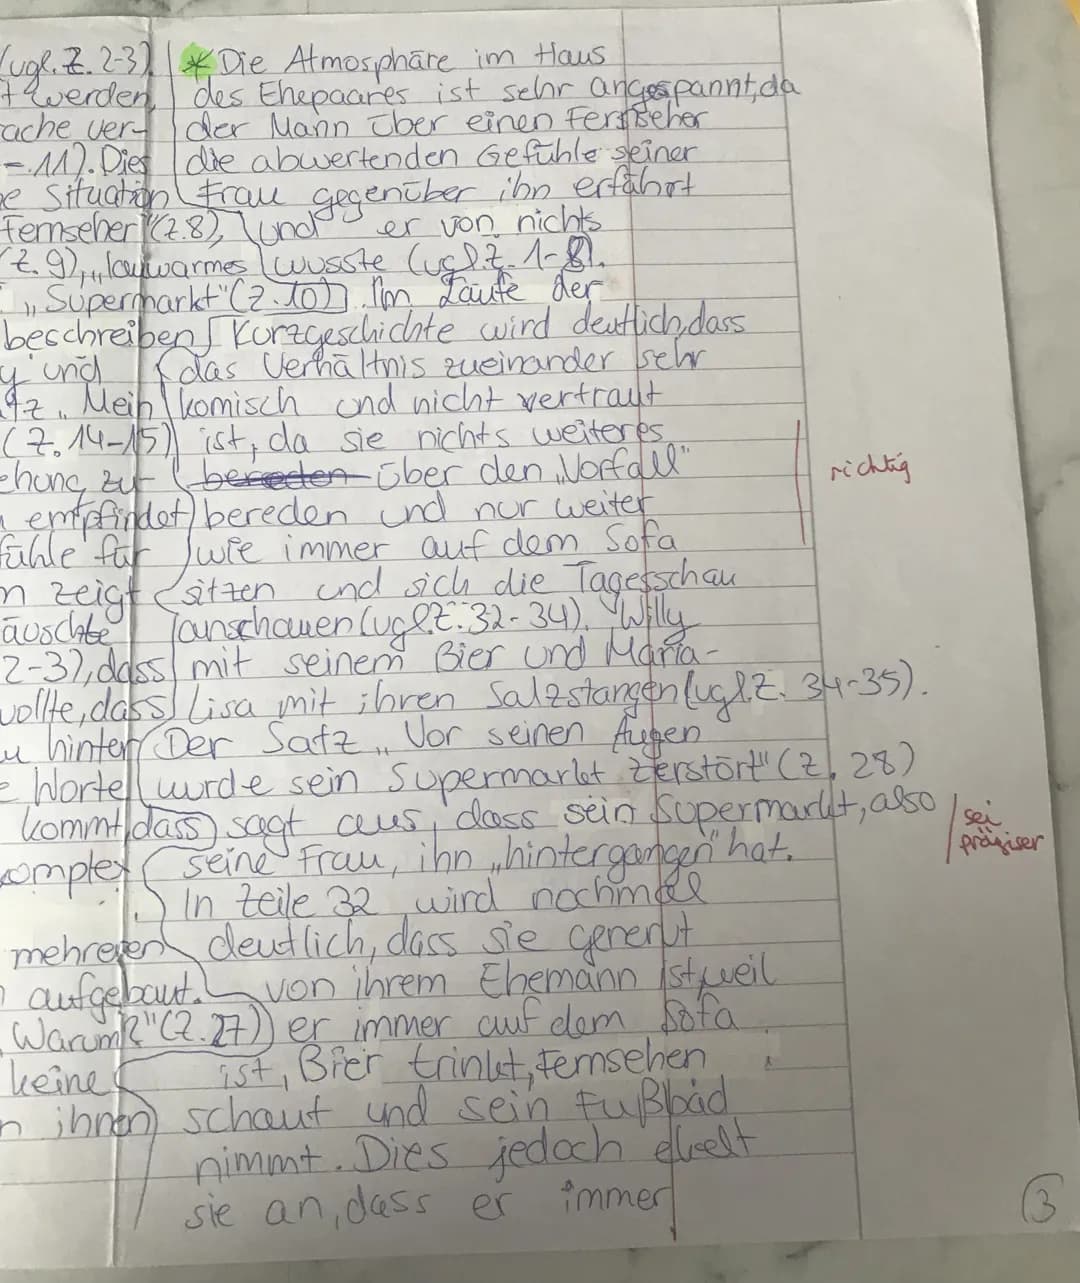 (vgl. Z. 2-3)
t werden,
ache ver-
-.11). Dies
e Situation
Fernseher" (Z.8),
(Z. 9), „lauwarmes
„Supermarkt" (Z. 10)
beschreiben
y und
tz „Mein
(Z. 14-15)
ehung zu
empfindet
fühle für
n zeigt
äuschte
2-3), dass
vollte, dass
u hinter
e Worte
kommt, dass
omplex
mehreren
aufgebaut.
Warum?" (Z. 27)
keine
n ihnen
* Die Atmosphäre im Haus
des Ehepaares ist sehr angespannt, da
der Mann über einen Fernseher
die abwertenden Gefühle seiner
Frau gegenüber ihn erfährt
und er von nichts
wusste (vgl. Z. 1-8).
Im Laufe der
Kurzgeschichte wird deutlich, dass
das Verhältnis zueinander sehr
komisch und nicht vertraut
ist, da sie nichts weiteres
bereden über den „Vorfall"
bereden und nur weiter
wie immer auf dem Sofa
sitzen und sich die Tagesschau
anschauen (vgl. Z. 32-34). Willy
mit seinem Bier und Maria-
Lisa mit ihren Salzstangen (vgl. Z. 34-35).
Der Satz „Vor seinen Augen
wurde sein Supermarkt zerstört" (Z. 28)
sagt aus, dass sein Supermarkt, also
seine Frau, ihn „hintergangen" hat.
In Zeile 32 wird nochmal
deutlich, dass sie genervt
von ihrem Ehemann ist, weil
er immer auf dem Sofa
ist, Bier trinkt, Fernsehen
schaut und sein Fußbad
nimmt. Dies jedoch ekelt
sie an, dass er immer
richtig
sei
präziser
3